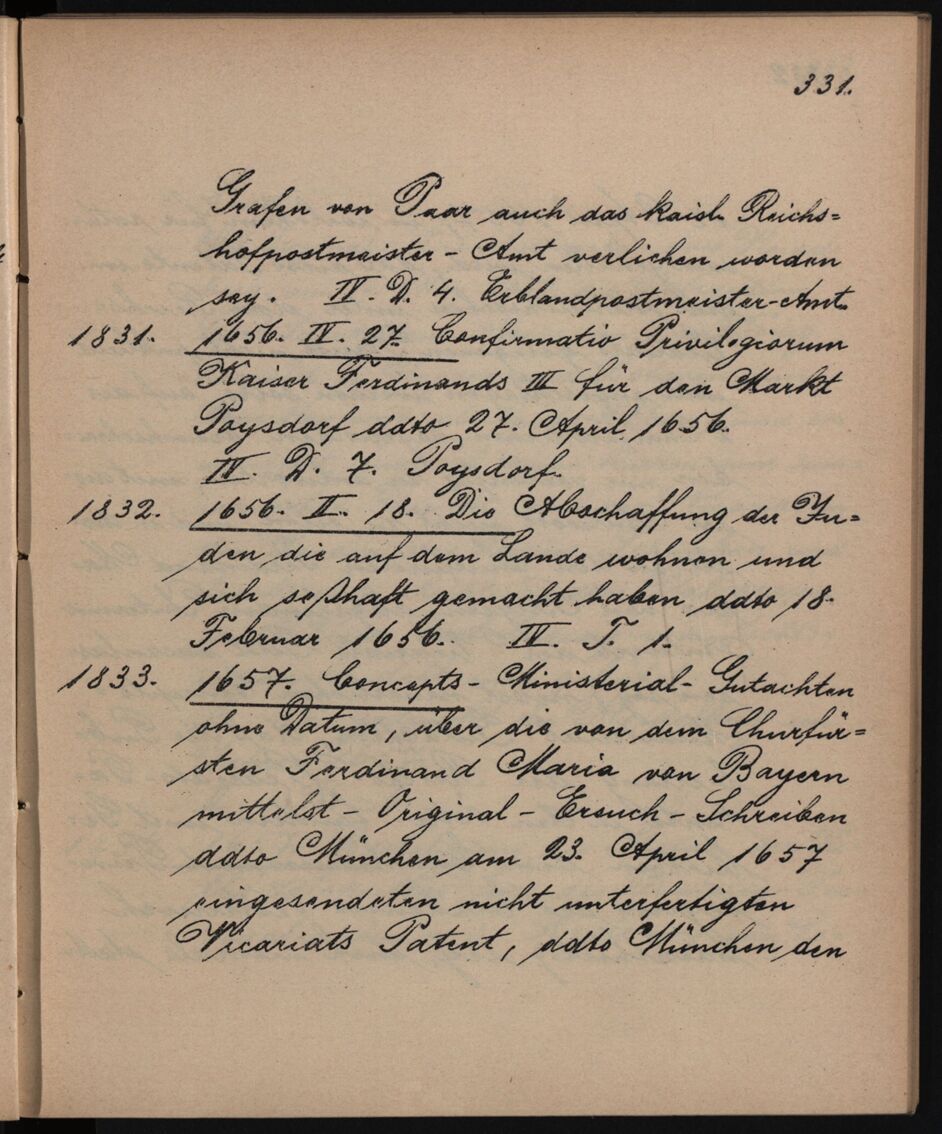 331.
Grafen von Paar auch das kaisl. Reichs=
hofpostmeister - Amt verlichen worden
sey. IV. D. 4. Erblandpostmeister-Amt.
1831. 1656. IV. 27. Confirmatio Privilegiorum
Kaiser Ferdinands III für den Markt
Poysdorf ddto 27. April 1656.
IV. D. 7. Poysdorf.
1832. 1656. II. 18. Die Abschaffung der Ju=
den die auf dem Lande wohnen und
sich seßhaft gemacht haben ddto 18.
Februar 1656. IV. T. 1.
1833. 1657. Concepts - Ministerial - Gutachten
ohne Datum, über die von dem Churfür=
sten Ferdinand Maria von Bayern
mittelst - Original - Ersuch - Schreiben
ddto München am 23. April 1657
eingesendeten nicht unterfertigten
Vicariats Patent, ddto München den